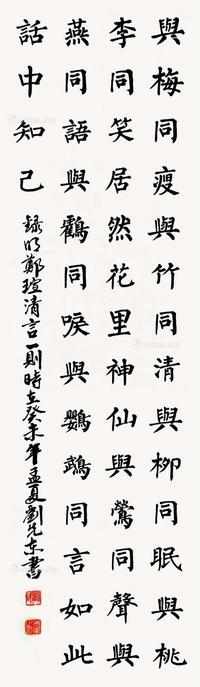 與梅同瘦與竹同清與柳同眠與桃
李同笑居然花里神仙與鶯同聲與
燕同語與鸛同唳與鸚鵡同言如此
話中知己
録明鄭瑄清言一則時在癸未年孟夏劉先東書